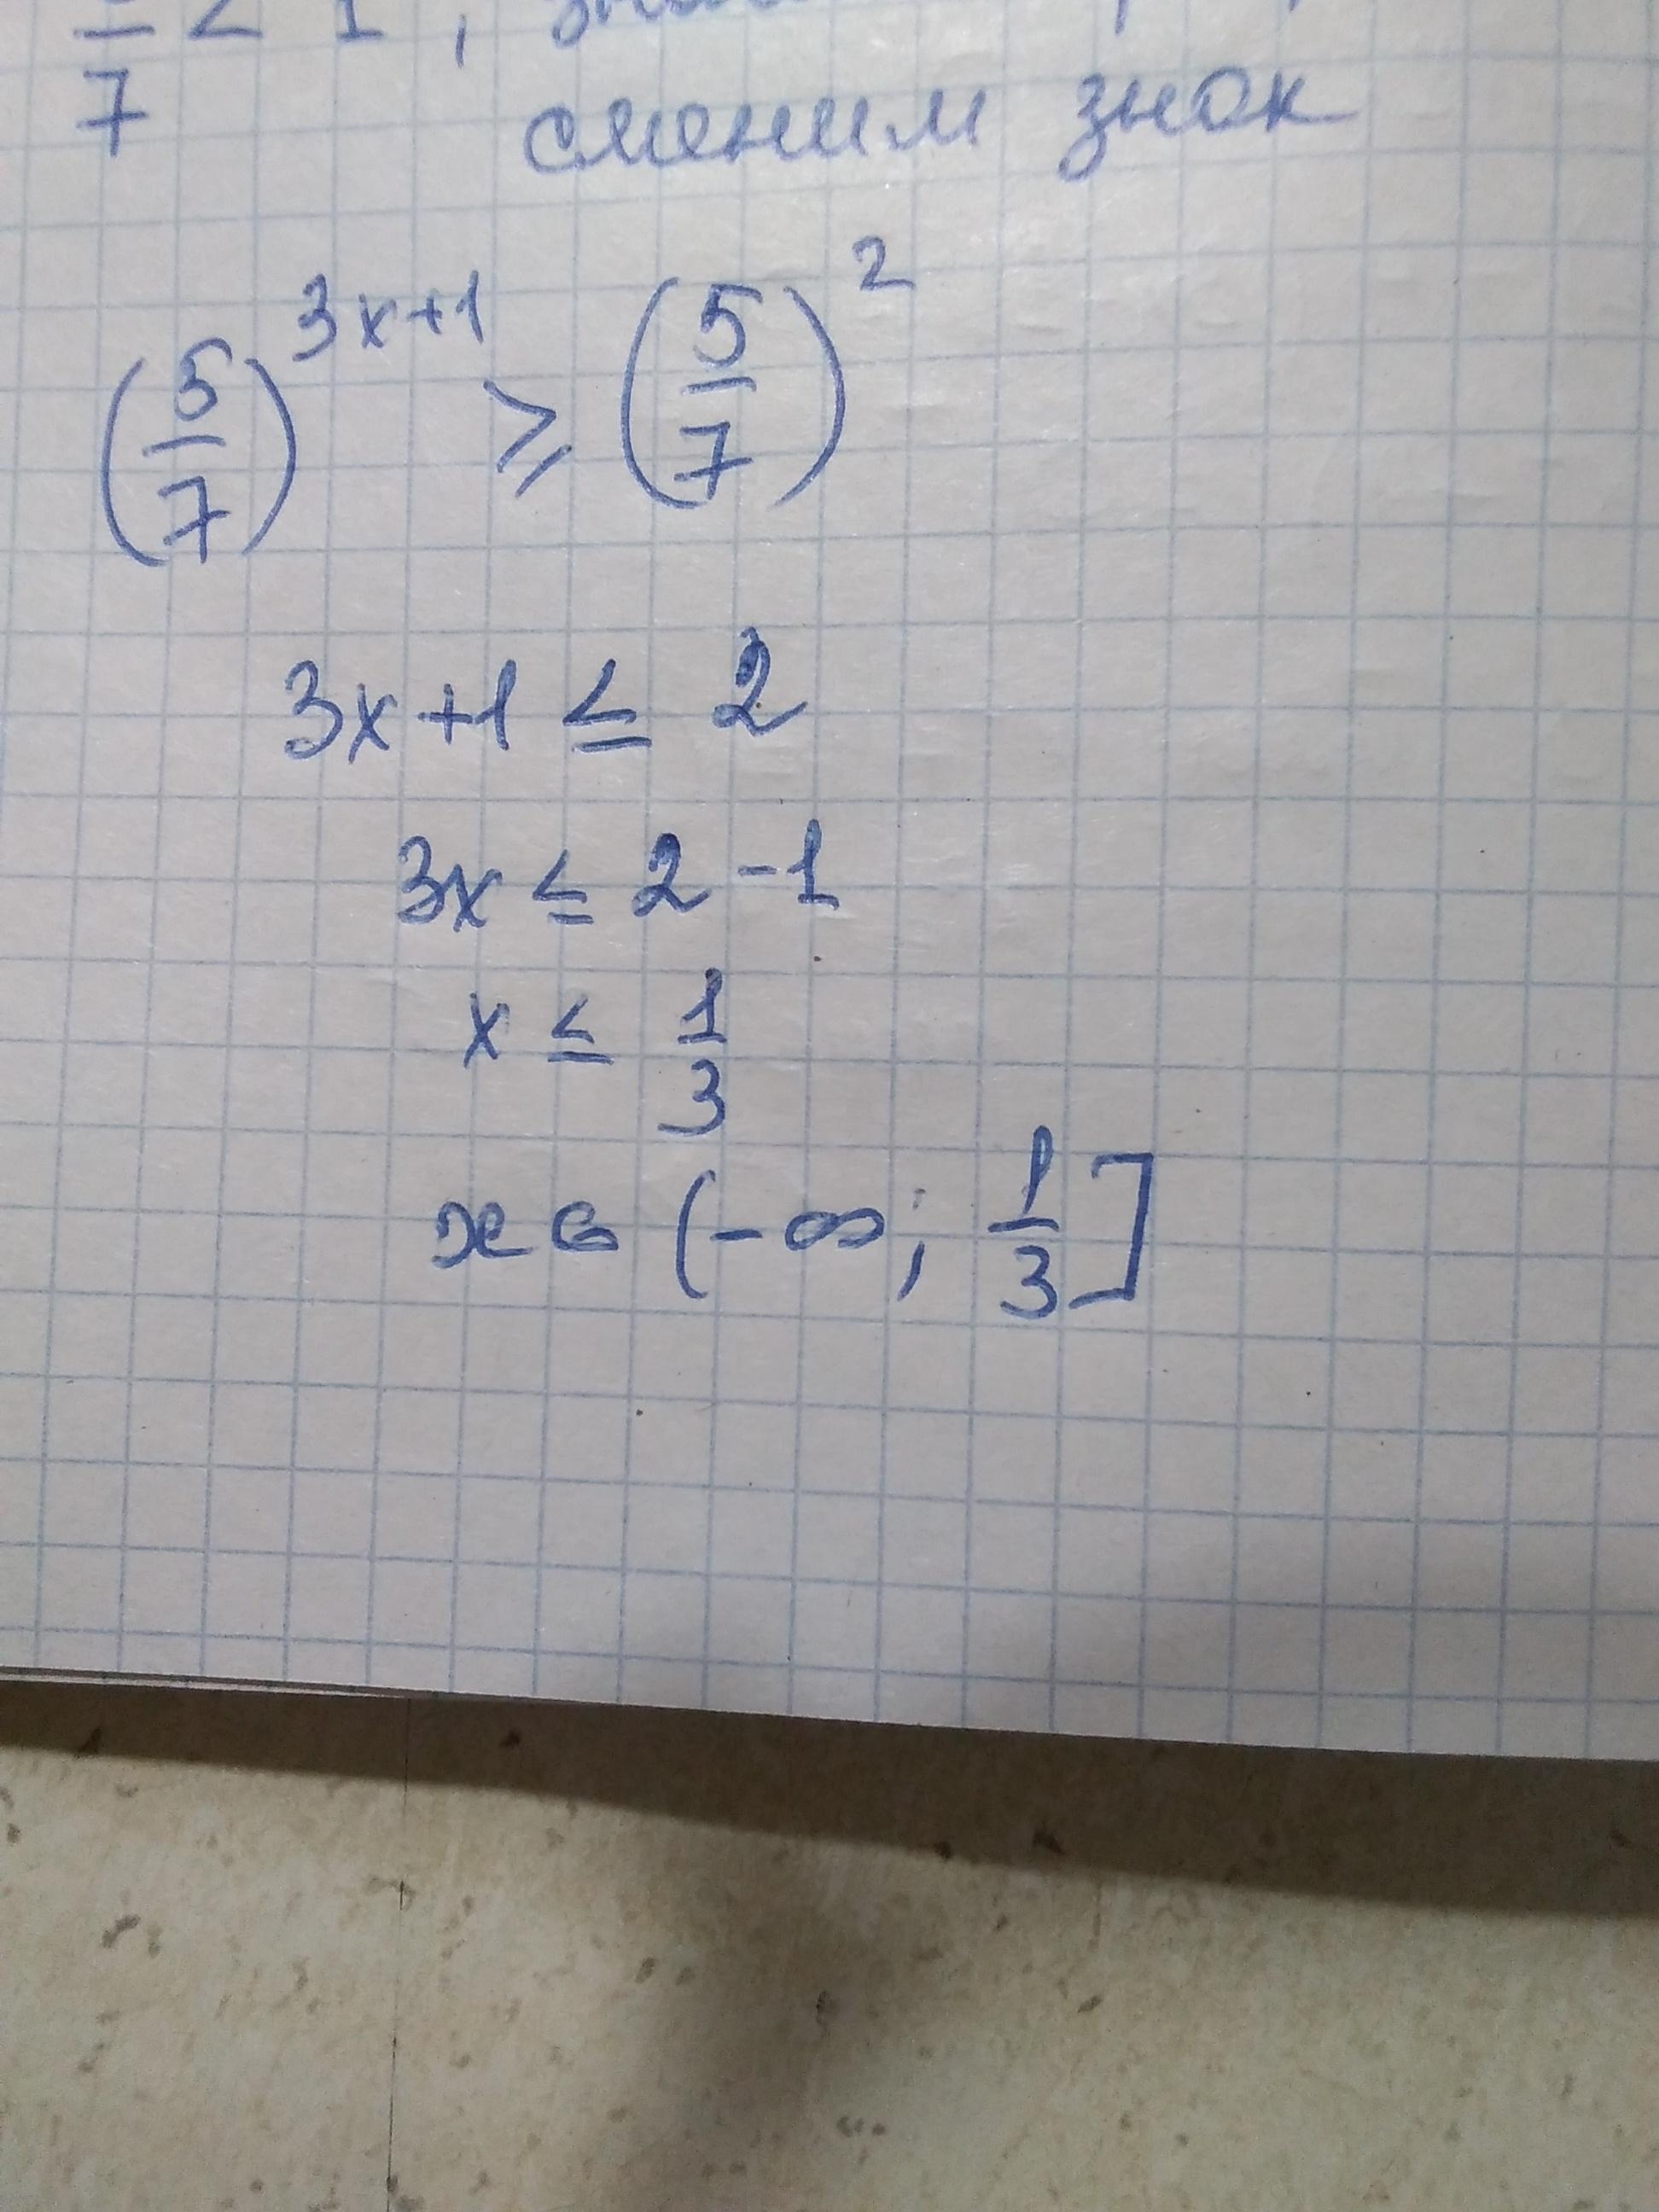 7 < 1,
сменим знак
(5/7)^3x+1 ⩾ (5/7)^2
3x+1 ≤ 2
3x ≤ 2 -1
x ≤ 1/3
x ∈ (-∞; 1/3]